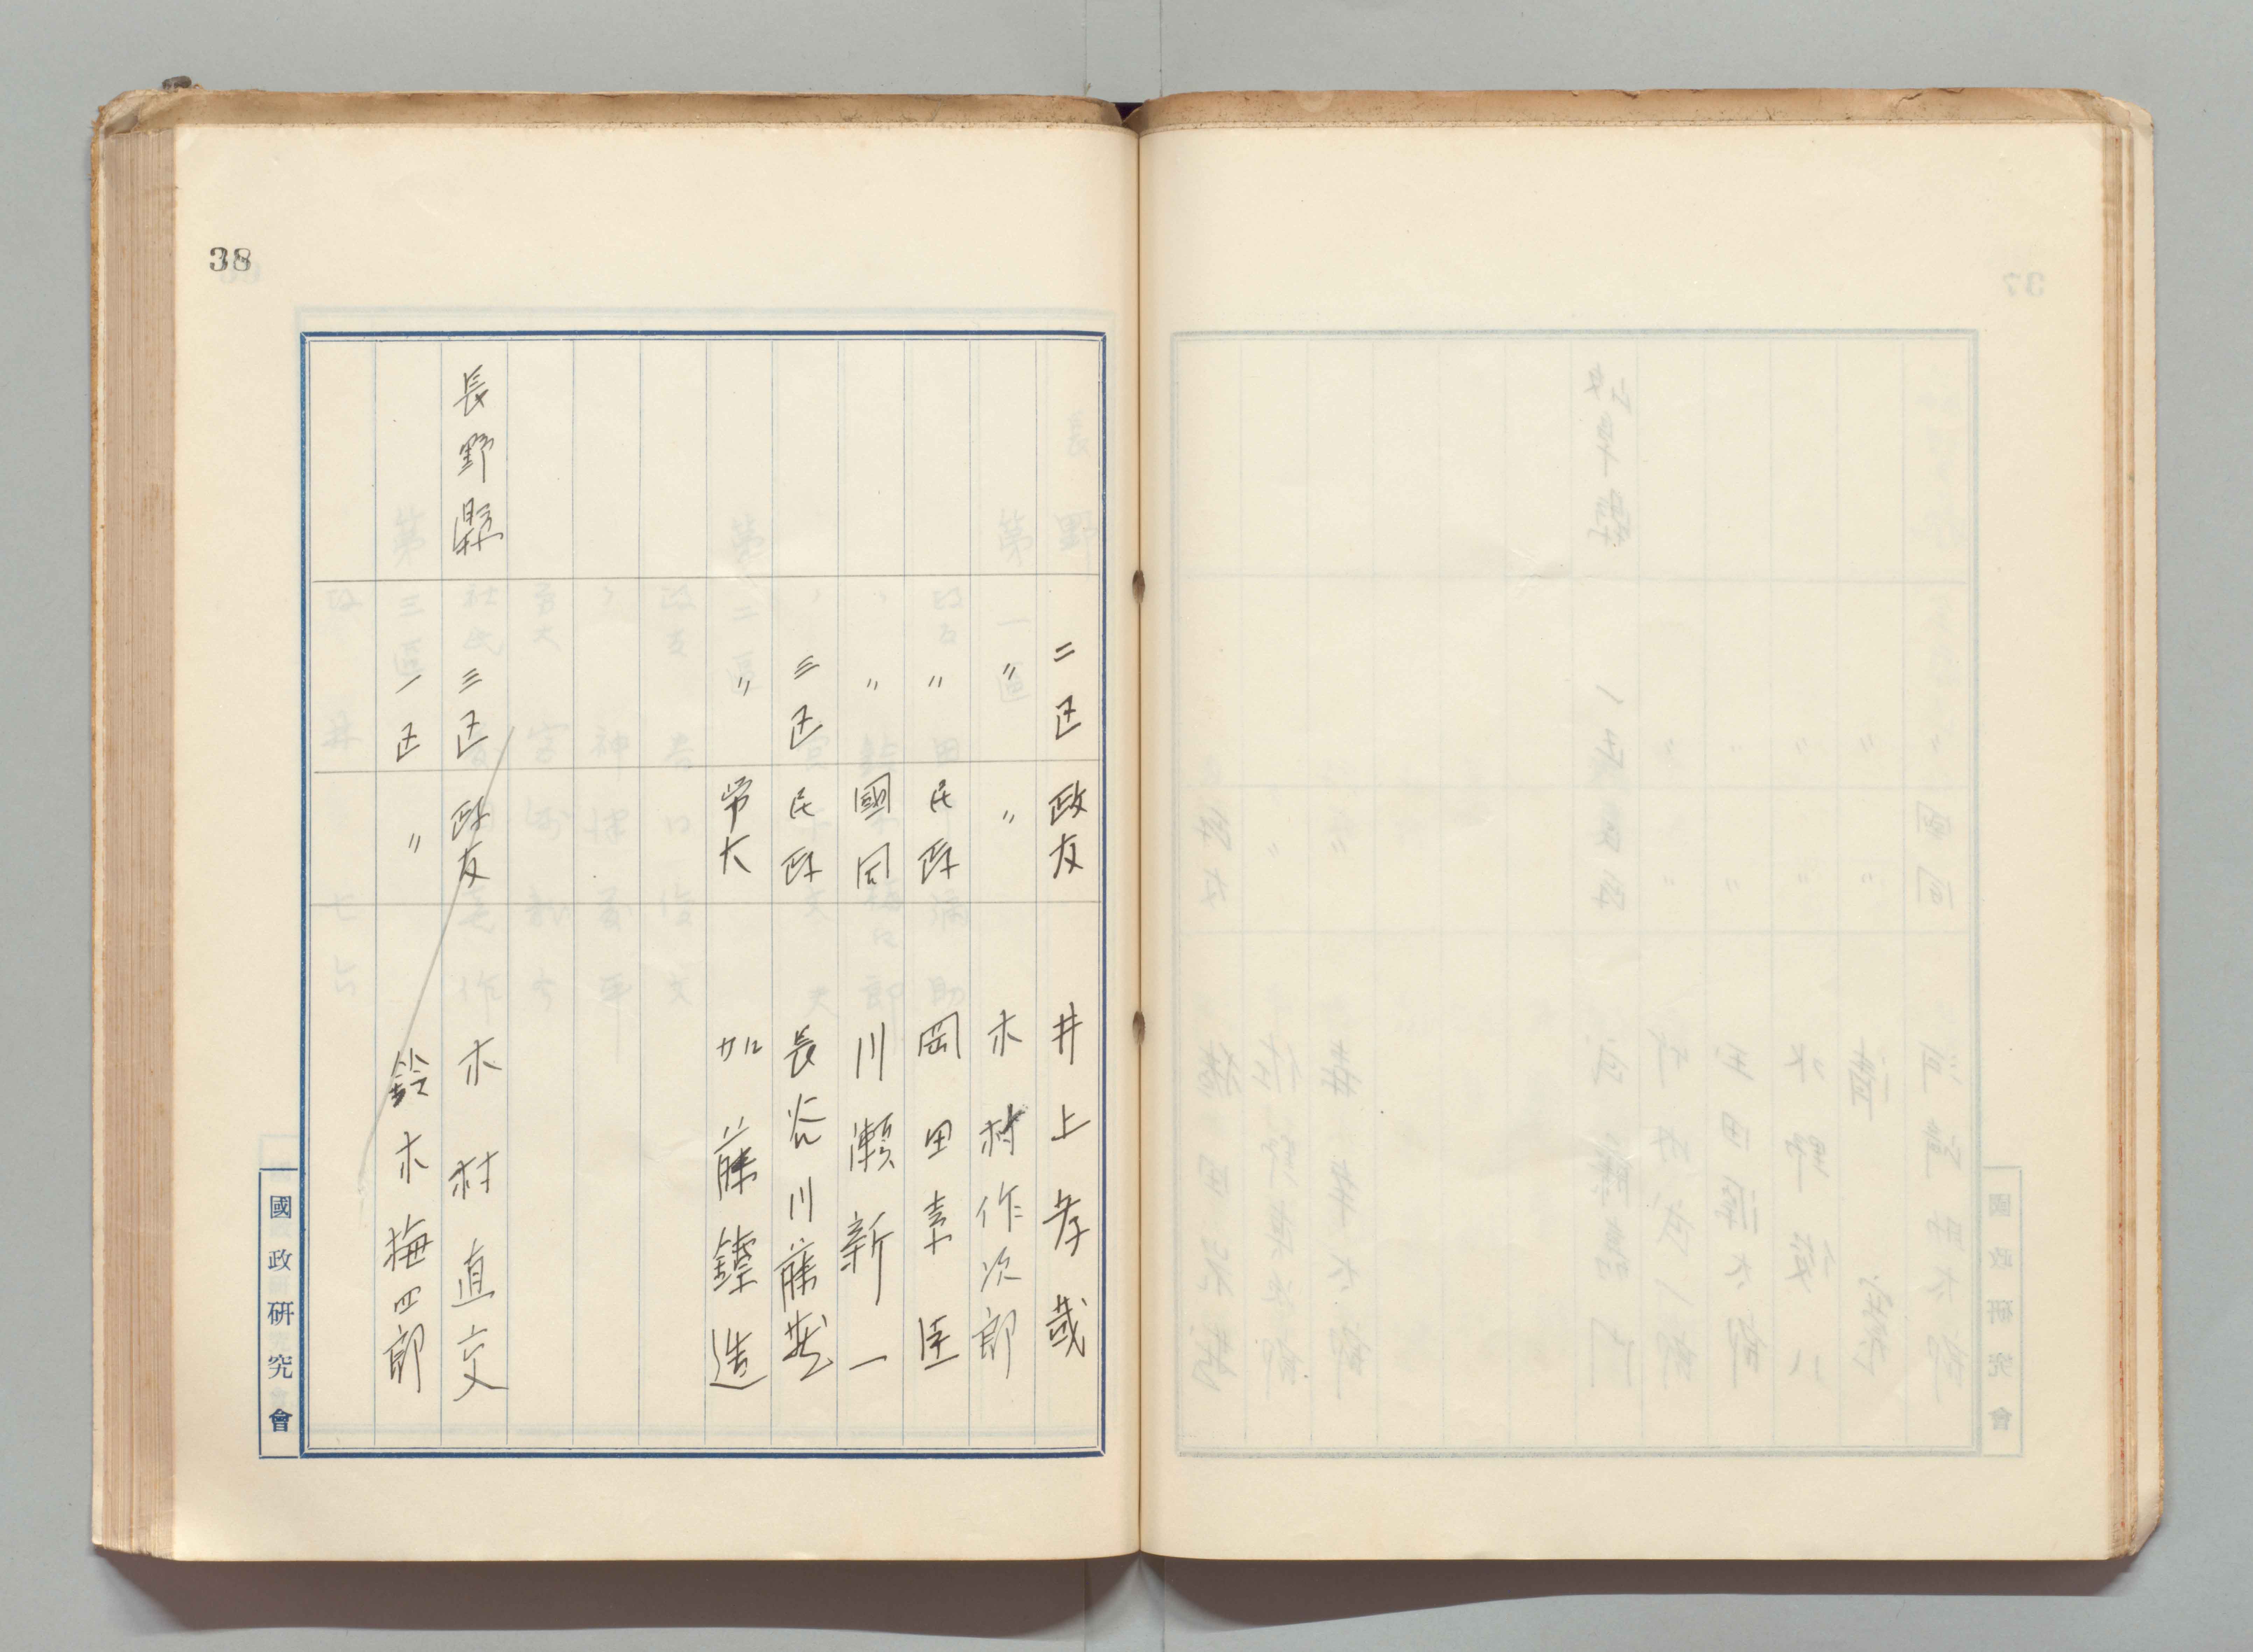 38
二区 政友 井上孝哉
〃 〃 木村作次郎
〃 民政 岡田
〃 國同 川瀬新一
三区 民政 長谷川
〃 労大 加藤鐐造
長野縣 三区 政友 木村直文
一区 〃 鈴木梅四郎
國政研究會